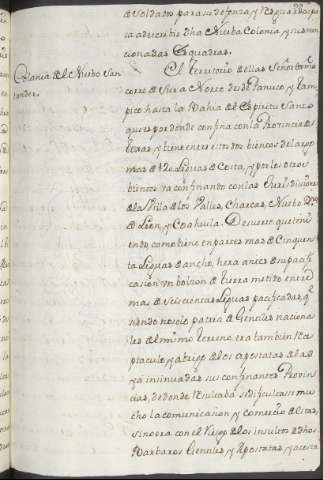 de Soldados para su defensa, y Resguardo, pa
ta advertir dha Nueba Colonia, y sus men
cionadas Esquadras.
Colonia del Nuebo San
tander.
El Territorio de ellas Señor Exmo
corre de Sur a Norte desde Panuco, y Tam
pico hasta la Bahia del Espiritu Santo
que es por donde confina con la Provincia de
texas, y tiene entre estos dos bientos de largo
mas de 120 Leguas de Costa, y por los otros
bientos va confinando con las Jurisdiciones
de la Villa de los Valles, Charcas, Nuebo Rno
de Leon, y Coahuila. De suerte que tini
endo, como tiene en partes mas de Cinquen
ta Leguas de ancho, hera antes de su pacifi
cacion un bolson de tierra metido entre
mas de Seiscientas Leguas pacificadas, q̃
siendo no solo patria de Gentiles naciona
les del mismo terreno, era tambien Re
ptaculo, y abrigo de los apostatas de las
ya insinuadas sus confinantes Provin
cias, de donde resultaba se dificultase mu
cho la comunicasion, y comercio de estas,
si no era con el Riesgo de los insultos de dhos
Barbaros Gentiles, y Apostatas, y a costa